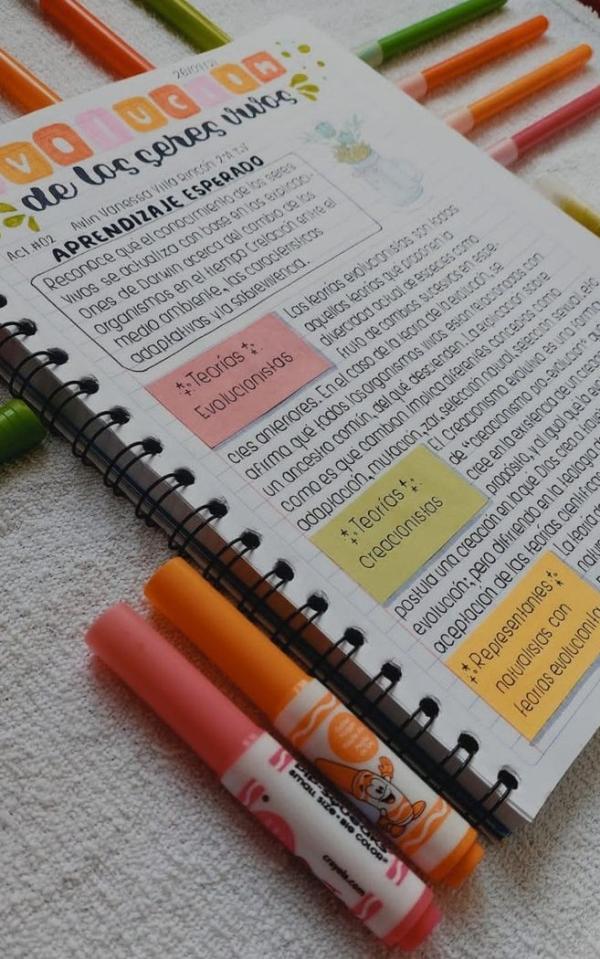 28/09/21
VOLUCION
de los seres vivos
Act #02 Aylin Vanessa Villa Rincón 2°A T.V
APRENDIZAJE ESPERADO
Reconoce que el conocimiento de los seres
vivos se actualiza con base en las explicaci-
ones de Darwin acerca del cambio de los
organismos en el tiempo (relación entre el
medio ambiente, las características
adaptativas y la sobrevivencia.
Las teorías evolucionistas son todas
aquellas teorías que proponen la
diversidad actual de especies como
fruto de cambios sucesivos en espe-
Teorías
Evolucionistas
cies anteriores. En el caso de la teoría de la evolución, se
afirma qué todos los organismos vivos están relacionados con
un ancestro común, del qué descienden. La evolución sobre
como es que cambian implica diferentes conceptos como
adaptación, mutación, zal, selección natural, selección sexual, etc
El Creacionismo evolutivo es una forma
de "creacionismo pro-evolución"
cree en la existencia de un
propósito, y al igual que
Teorías
Creacionistas
postula una creación en la que Dios creó a
evolución", pero difiriendo en la teología
aceptación de las teorías científicas
La teoría
Representantes
naturalistas con
teorías evolucionista
SMALL SIZE · BIG COLOR
crayola.com